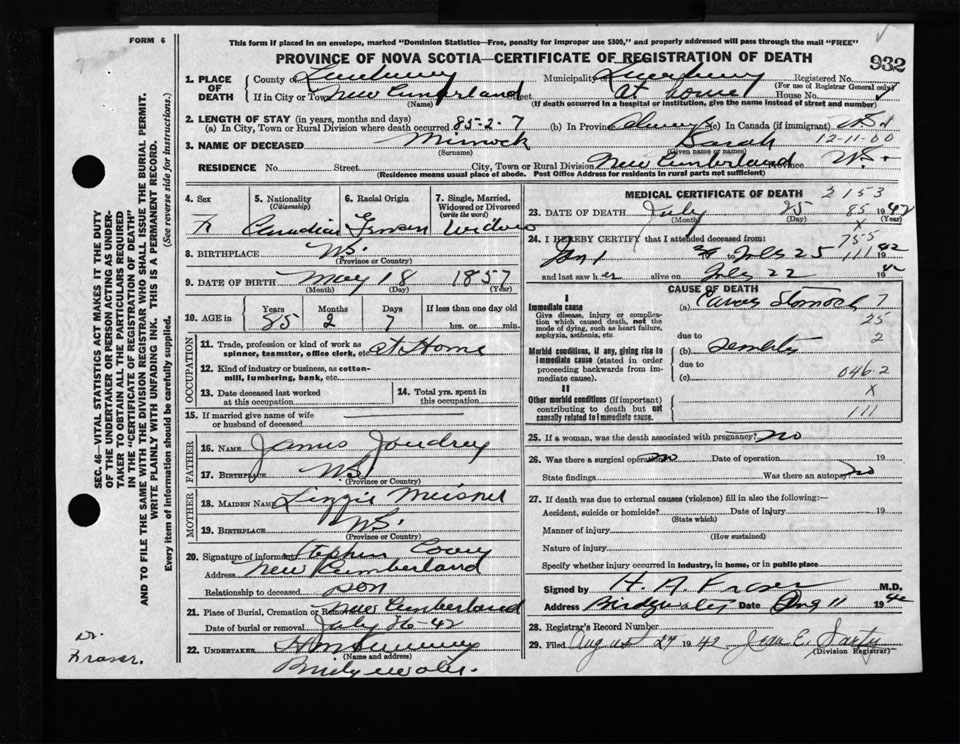 FORM 6
This form if placed in an envelope, marked "Dominion Statistics—Free, penalty for improper use $300," and properly addressed will pass through the mail "FREE"
PROVINCE OF NOVA SCOTIA—CERTIFICATE OF REGISTRATION OF DEATH
932
1. PLACE OF DEATH
County of Lunenburg Municipality Lunenburg Registered No.
(For use of Registrar General only)
If in City or Town New Cumberland Street at home House No.
(Name) (If death occurred in a hospital or institution, give the name instead of street and number)
2. LENGTH OF STAY (in years, months and days)
(a) In City, Town or Rural Division where death occurred 85-2-7 (b) In Province Always (c) In Canada (if immigrant)
12-11-00
3. NAME OF DECEASED Sarah
(Surname) (Given name or names)
RESIDENCE No. Street City, Town or Rural Division New Cumberland Province N.S.
(Residence means usual place of abode. Post Office Address for residents in rural parts not sufficient)
4. Sex F
5. Nationality (Citizenship) Canadian
6. Racial Origin German
7. Single, Married, Widowed or Divorced (write the word) Widow
8. BIRTHPLACE N.S.
(Province or Country)
9. DATE OF BIRTH May 18 1857
(Month) (Day) (Year)
10. AGE in Years 85 Months 2 Days 7 If less than one day old
hrs. or min.
OCCUPATION
11. Trade, profession or kind of work as spinner, teamster, office clerk, etc. at Home
12. Kind of industry or business, as cotton-mill, lumbering, bank, etc.
13. Date deceased last worked at this occupation
14. Total yrs. spent in this occupation
15. If married give name of wife or husband of deceased
FATHER
16. NAME James Joudrey
17. BIRTHPLACE N.S.
(Province or Country)
MOTHER
18. MAIDEN NAME Lizzie Meisner
19. BIRTHPLACE N.S.
(Province or Country)
20. Signature of informant Stephen
Address New Cumberland
Relationship to deceased son
21. Place of Burial, Cremation or Removal New Cumberland
Date of burial or removal July 26-42
22. UNDERTAKER
(Name and address)
Bridgewater.
MEDICAL CERTIFICATE OF DEATH 2153
23. DATE OF DEATH July 25 85 1942
(Month) (Day) (Year)
X
24. I HEREBY CERTIFY that I attended deceased from: 755
Jan 1 to July 25 111 1942
and last saw her alive on July 22 1942
CAUSE OF DEATH
I
Immediate cause
Give disease, injury or complication which caused death, not the mode of dying, such as heart failure, asphyxia, asthenia, etc.
(a) Cancer Stomach 7
25
due to 2
Morbid conditions, if any, giving rise to immediate cause (stated in order proceeding backwards from immediate cause).
(b)
due to
(c) 046.2
II
X
Other morbid conditions (if important) contributing to death but not causally related to immediate cause.
111
25. If a woman, was the death associated with pregnancy? No
26. Was there a surgical operation? no Date of operation 19
State findings Was there an autopsy? no
27. If death was due to external causes (violence) fill in also the following—
Accident, suicide or homicide? Date of injury 19
(State which)
Manner of injury
(How sustained)
Nature of injury
Specify whether injury occurred in industry, in home, or in public place
Signed by H. A. Fraser M.D.
Address Bridgewater Date Aug 11 1942
28. Registrar's Record Number
29. Filed August 27 1942 Jean E.
(Division Registrar)
SEC. 46—VITAL STATISTICS ACT MAKES IT THE DUTY
OF THE UNDERTAKER OR PERSON ACTING AS UNDER-
TAKER TO OBTAIN ALL THE PARTICULARS REQUIRED
IN THE "CERTIFICATE OF REGISTRATION OF DEATH"
AND TO FILE THE SAME WITH THE DIVISION REGISTRAR WHO SHALL ISSUE THE BURIAL PERMIT.
WRITE PLAINLY WITH UNFADING INK. THIS IS A PERMANENT RECORD.
Every item of information should be carefully supplied. (See reverse side for instructions).
Dr.
Fraser.